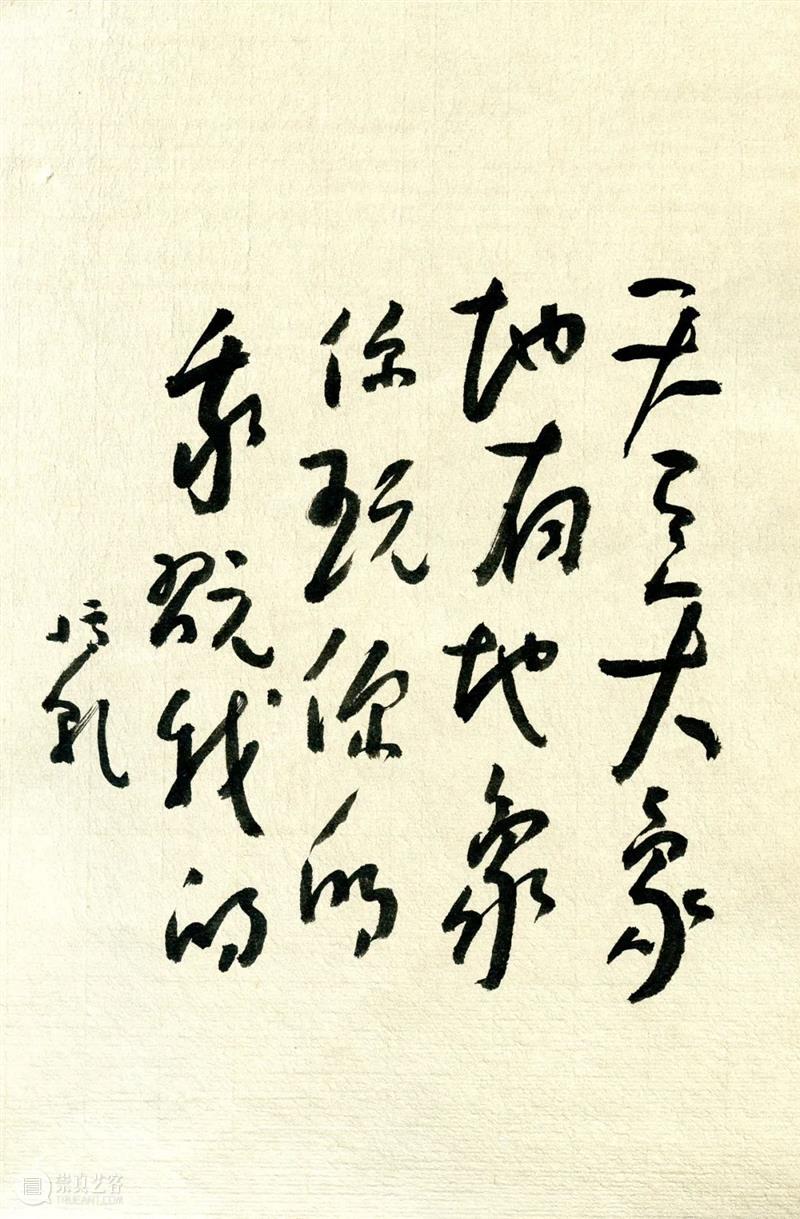 天有天象
地有地象
你玩你的
我翫我的
崇真艺客
TRUEART.COM